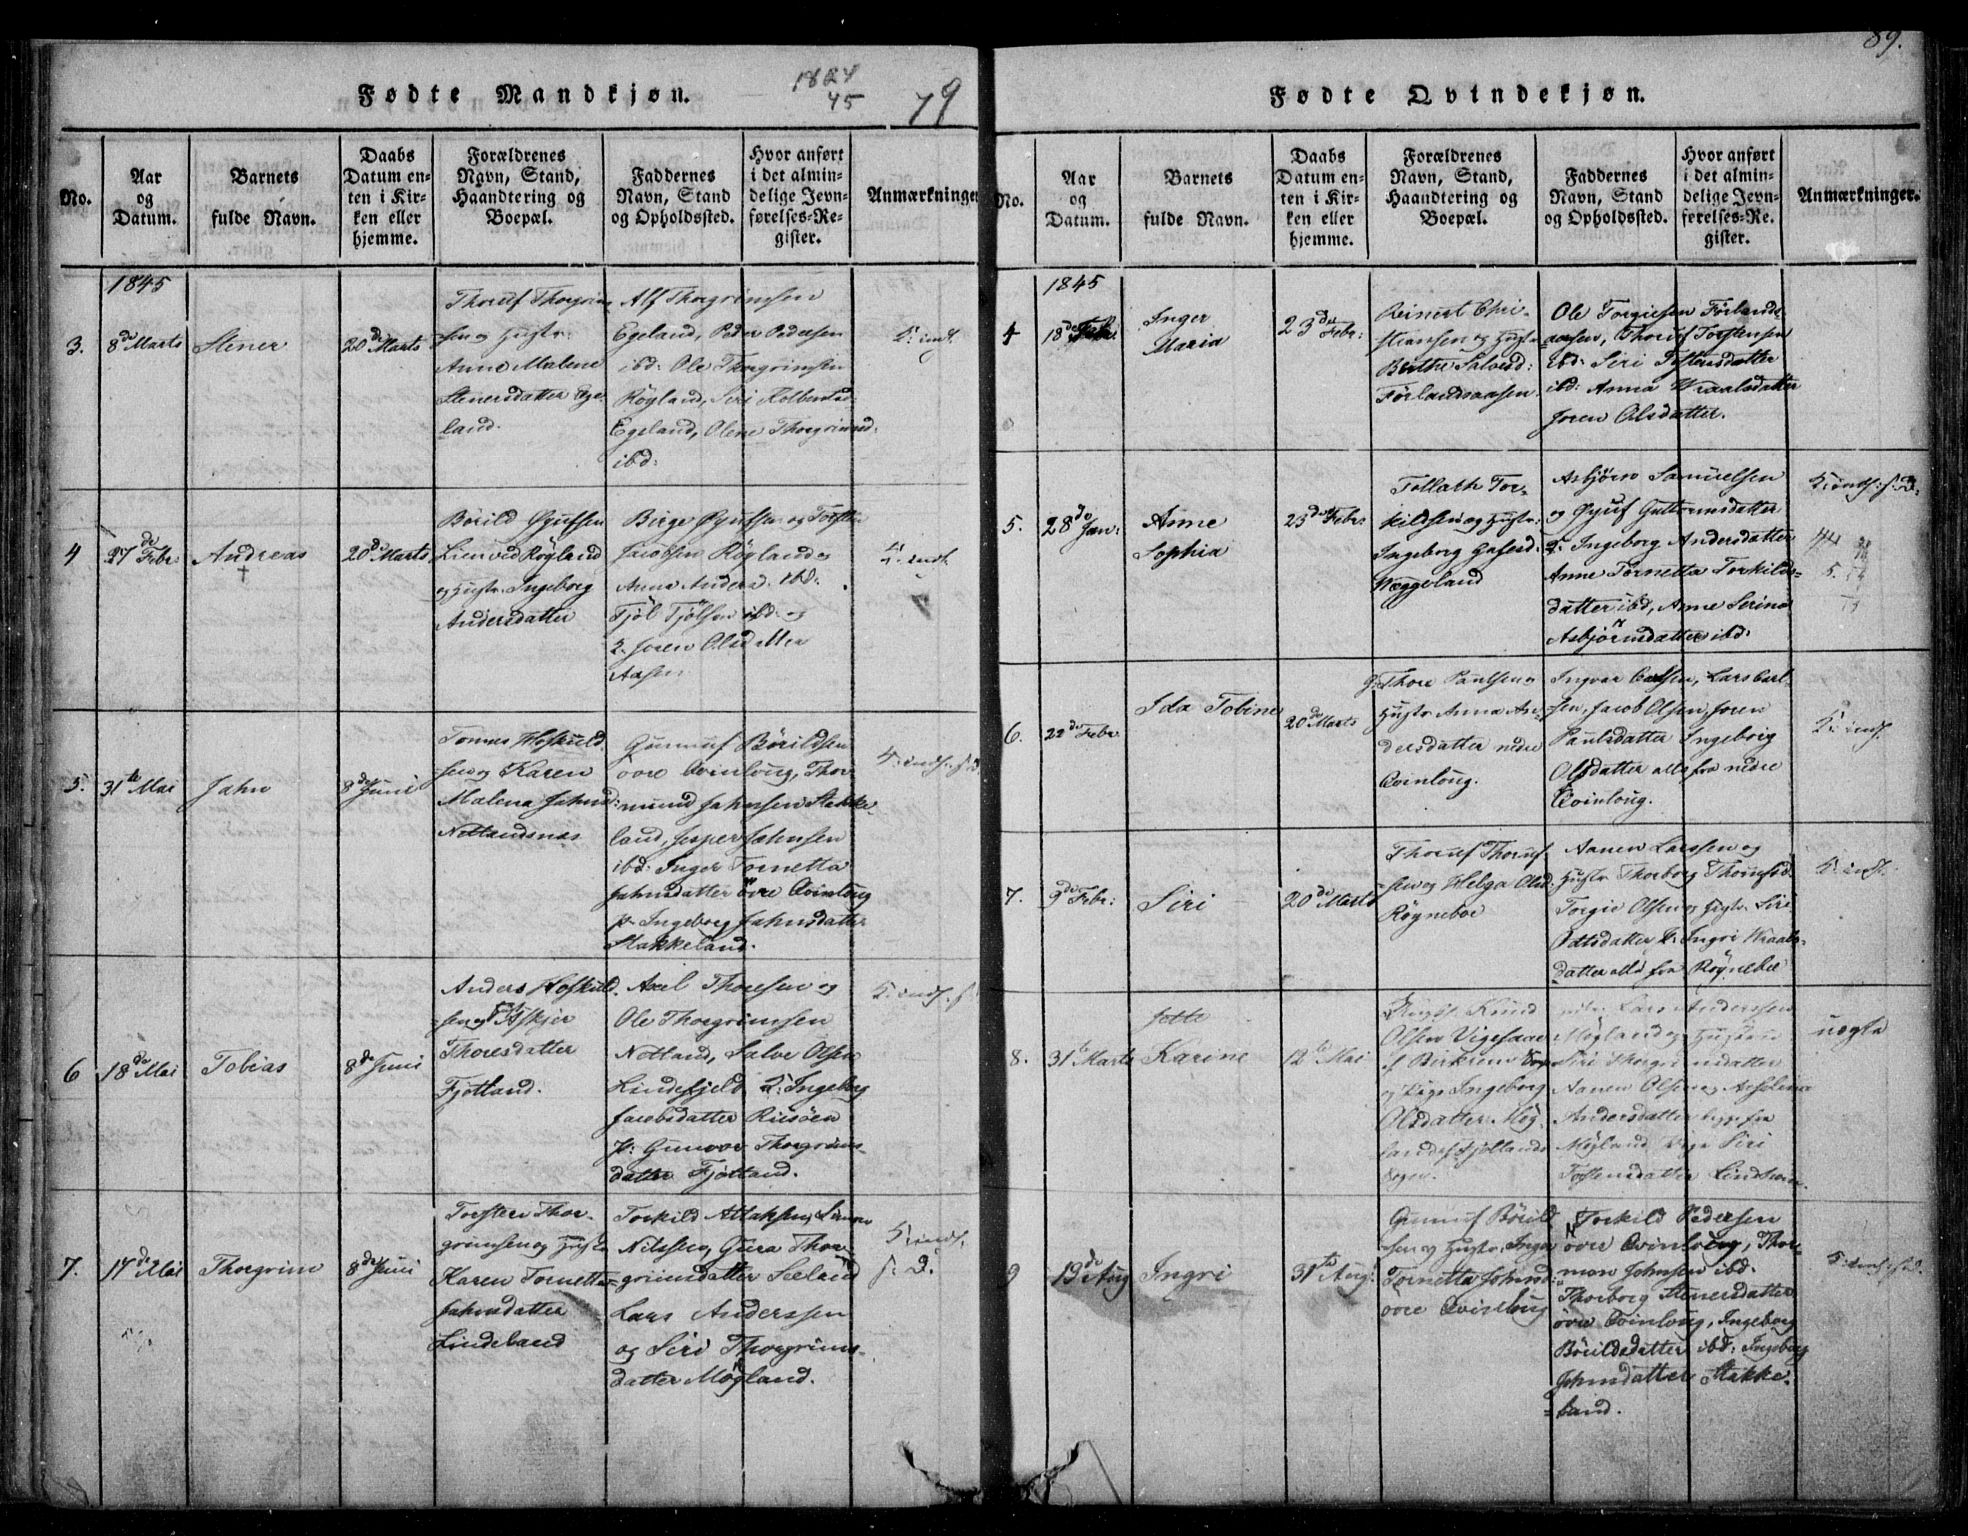 1844
45
79
Fødte Mandkjøn.
No.
Aar
og
Datum.
Barnets
fulde Navn.
Daabs
Datum en-
ten i Kir-
ken eller
hjemme.
Forældrenes
Navn, Stand,
Haandtering og
Boepæl.
Faddernes
Navn, Stand
og Opholdssted.
Hvor anført
i det almin-
delige Jevn-
førelses-Re-
gister.
Anmærkninger
1845
3.
8de Marts
Stener
20de Marts
Thoruf Thorgrim
sen og Hustr:
Anne Malene
Stenersdatter Ege-
land.
Alf Thorgrimsen
Egeland, Peder Pedersen
ibd: Ole Thorgrimsen
Røgland, Siri
Egeland, Olene Thorgrimsd.
ibd:
4
27de Febr:
Andreas
†
20de Marts
Børild Gjufsen
Røgland
og Hustr. Ingeborg
Andersdatter
Birge Gjufsen og Torsten
Jacobsen Røgland og
Anna Andersd. ibd:
Tjøl Tjølsen ibd: og
2. Joren Olsdatter
Aasen
5.
31te Mai
Jahn
8de Juni
Tomas Hoskuld
sen og Karen
Malena Jahnsd:
Netlandsnæs
Gunnuf Børildsen
övre Qvinlong, Thor-
mund Jahnsen Stakke-
land, Jesper Jahnsen
ibd: Inger Tornetta
Jahnsdatter övre Qvinlong
p. Ingeborg Jahnsdatter
Stakkeland.
6
18de Mai
Tobias
8de Juni
Anders Hoskuld
sen og Askjer
Thoresdatter
Fjotland.
Axel Thoresen og
Ole Thorgrimsen
Netland, Salve Olsen
Lindefjeld 2. Ingeborg
Jacobsdatter Risöen
p: Gunvor Thorgrims-
datter Fjotland.
7.
14de Mai
Thorgrim
8de Juni
Torsten Thor-
grimsen og Hustr.
Karen Tornetta
Jahnsdatter
Lindeland
Torkild Attaksen, Simon
Nilssen, Gura Thor-
grimsdatter Seland
Lars Anderssen
og Siri Thorgrims-
datter Mögland.
89.
Fødte Qvindekjøn.
No.
Aar
og
Datum.
Barnets
fulde Navn.
Daabs
Datum en-
ten i Kir-
ken eller
hjemme.
Forældrenes
Navn, Stand,
Haandtering og
Boepæl.
Faddernes
Navn, Stand
og Opholdssted.
Hvor anført
i det almin-
delige Jevn-
førelses-Re-
gister.
Anmærkninger.
1845
4
18de Febr.
Inger
Maria
23de Febr:
Reinert Chri-
stiansen og Hustr.
Birthe Salvesd:
Førlandsaasen.
Ole Torgiesen Førlands-
aasen, Thoruf Torstensen
ibd: Siri Tostensdatter
ibd: Anna Wraalsdatter
Joren Olsdatter.
5.
28de Jan:
Anne
Sophia
23de Febr
Tollak Tor-
kildsen og Hustr:
Ingeborg
Næggeland
Asbjørn Samuelsen
og Gjuf Guttormsdatter
2. Ingeborg Andersdatter
Anne Tornetta Torkilds-
datter ibd, Anne Serina
Asbjørnsdatter ibd:
6.
22de Febr
Ida Tobine
20de Marts
Thore Paulsen og
Hustr Anna An-
dersdatter nedre
Qvinlong.
Ingvar Carlsen, Lars Carl-
sen, Jacob Olsen, Joren
Paulsdatter Ingeborg
Olsdatter alle fra nedre
Qvinlong.
7.
9de Febr:
Siri
20de Marts
Thoruf Thoruf-
sen og Helga Olsd.
Røyneboe
Aanen Larssen og
Hustr Thorborg
Torgie Olsen og Hustr. Siri
Oddsdatter p. Ingri Wraals-
datter alle fra Røynebøe
8.
31te Marts
Jette
Karine
12te Mai
Knud
Olsen Vigesaae
og Pige Ingeborg
Olsdatter Møg-
land af Fjotlands
Sogn.
Lars Anderssen
Møgland og Hustru
Siri Thorgrimsdatter
Aanen Olsen og Asseline
Andersdatter begge fra
Møgland Pige Siri
Tostensdatter
uægte
9
19de Aug
Ingri
31te Aug:
Gunnuf Børild
sen og Hustr. Inger
Tornetta Johnsd:
övre Qvinlong
Torkild Pedersen
övre Qvinlong, Thor-
mon Johnsen ibd.
Thorborg Stenersdatter
övre Qvinlong, Ingeborg
Børildsdatter ibd: Ingeborg
Johnsdatter Stakke-
land.